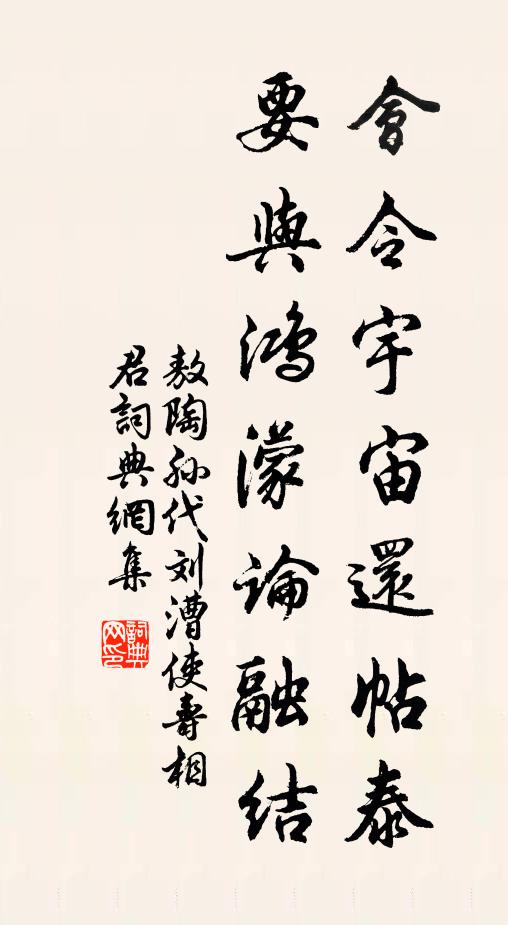 會令宇宙還帖泰
要與鴻濛論融結
敖陶孙代刘漕使壽相
君詞典網集
詞典网印